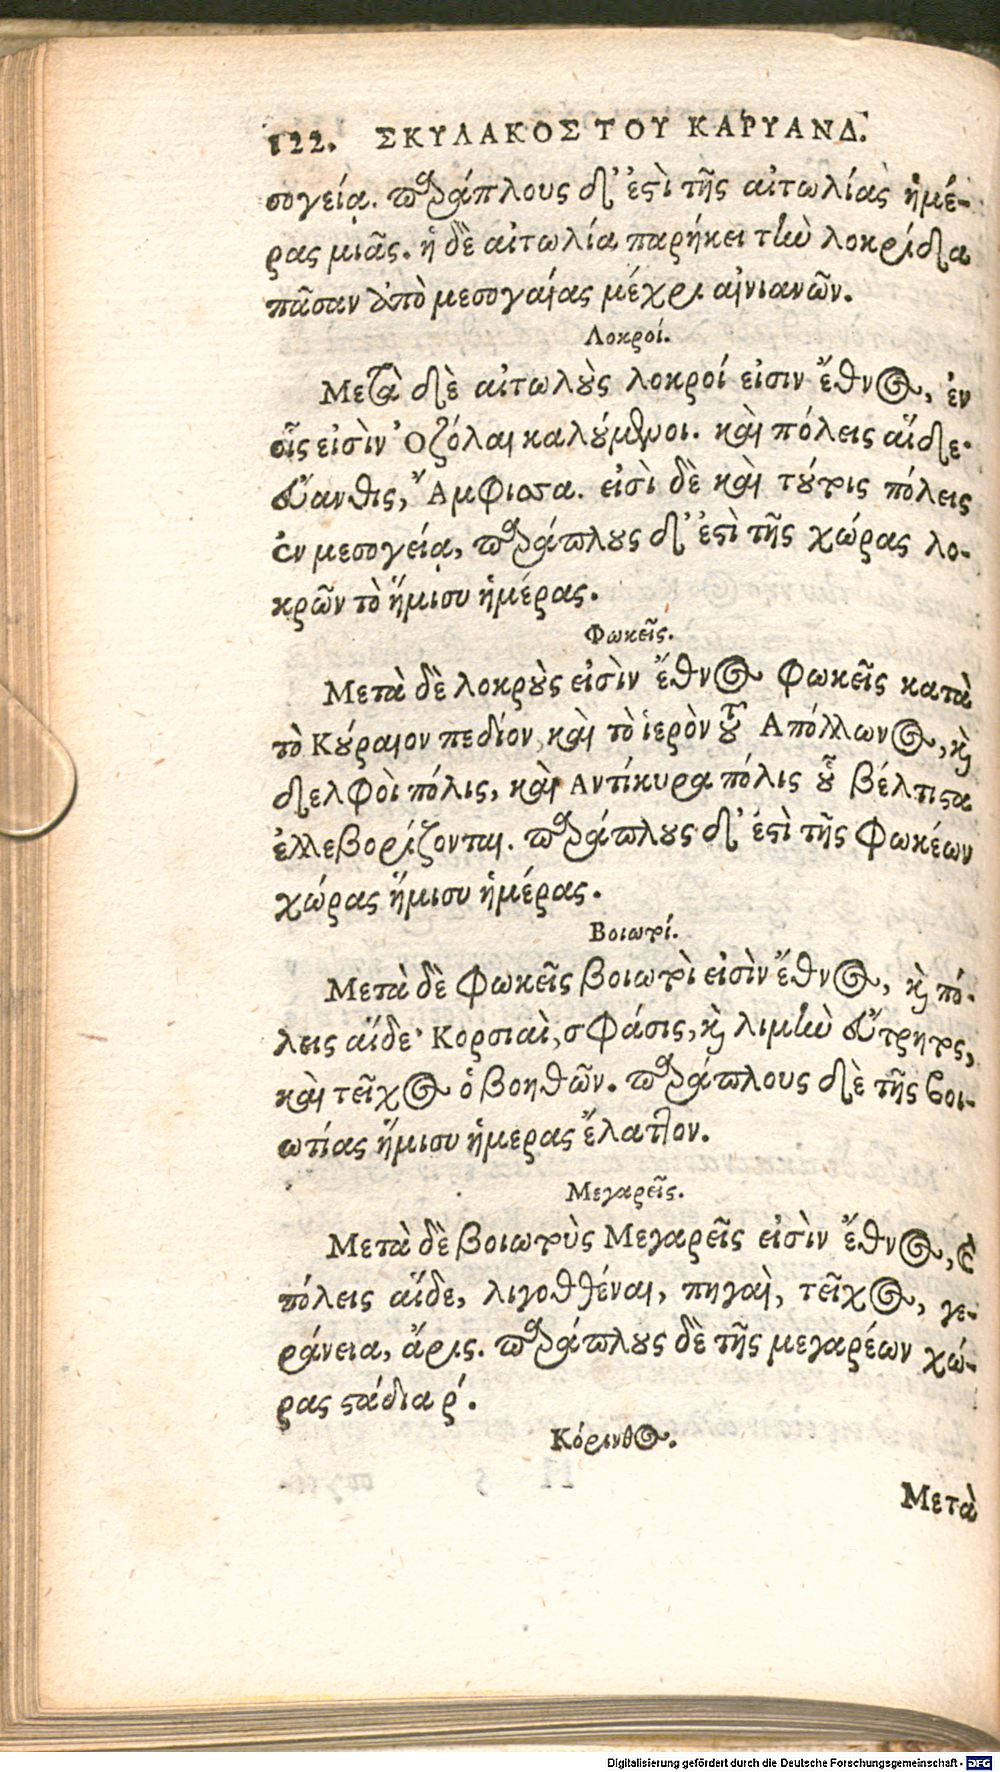 122. ΣΚΥΛΑΚΟΣ ΤΟΥ ΚΑΡΥΑΝΔ.
σογείᾳ. παράπλους δ' ἐστὶ τῆς αἰτωλίας ἡμέ-
ρας μιᾶς. ἡ δὲ αἰτωλία παρήκει τὴν λοκρίδα
πᾶσαν ἀπὸ μεσογαίας μέχρι αἰνιανῶν.
Λοκροί.
Μετὰ δὲ αἰτωλοὺς λοκροί εἰσιν ἔθνος, ἐν
οἷς εἰσὶν Ὀζόλαι καλούμενοι. καὶ πόλεις αἵδε·
Εὔανθις, Ἄμφισσα. εἰσὶ δὲ καὶ τούτοις πόλεις
ἐν μεσογείᾳ, παράπλους δ' ἐστὶ τῆς χώρας λο-
κρῶν τὸ ἥμισυ ἡμέρας.
Φωκεῖς.
Μετὰ δὲ λοκροὺς εἰσὶν ἔθνος Φωκεῖς κατὰ
τὸ Κύραιον πεδίον, καὶ τὸ ἱερὸν τοῦ Απόλλωνος, καὶ
δελφοὶ πόλις, καὶ Αντίκυρα πόλις οὗ βέλτιστα
ἐλλεβορίζονται. παράπλους δ' ἐστὶ τῆς Φωκέων
χώρας ἥμισυ ἡμέρας.
Βοιωτοί.
Μετὰ δὲ Φωκεῖς βοιωτοὶ εἰσὶν ἔθνος, καὶ πό-
λεις αἵδε· Κορσιαὶ, σφάσις, καὶ λιμὴν εὔτρητος,
καὶ τεῖχος ὁ βοηθῶν. παράπλους δὲ τῆς βοι-
ωτίας ἥμισυ ἡμερας ἔλαττον.
Μεγαρεῖς.
Μετὰ δὲ βοιωτοὺς Μεγαρεῖς εἰσὶν ἔθνος, καὶ
πόλεις αἵδε, λιγοθθέναι, πηγαὶ, τεῖχος, γε-
ράνεια, ἄρις. παράπλους δὲ τῆς μεγαρέων χώ-
ρας στάδια ρ΄.
Κόρινθος.
Μετὰ
Digitalisierung gefördert durch die Deutsche Forschungsgemeinschaft - DFG